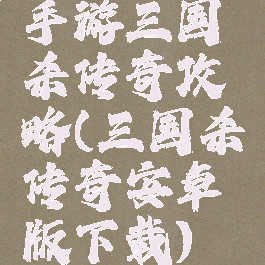 手游三国
杀传奇攻
略(三国杀
传奇安卓
版下载)